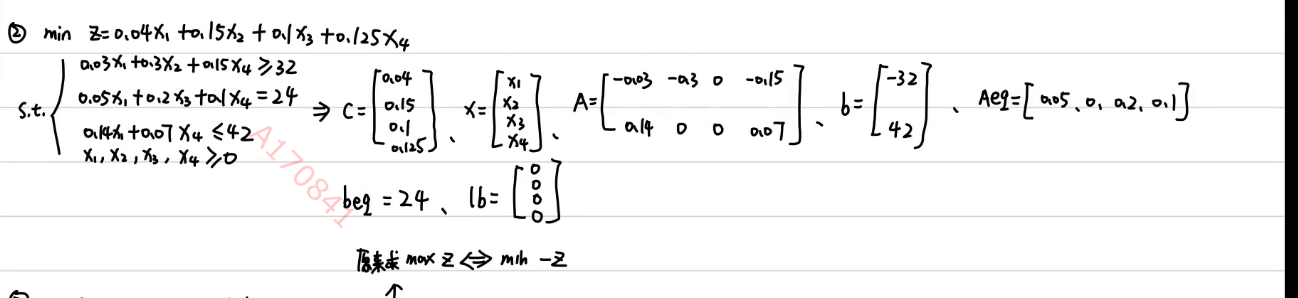 ② min z=0.04x₁+0.15x₂+0.1x₃+0.125x₄
s.t. { 0.03x₁+0.3x₂+0.15x₄≥32
0.05x₁+0.2x₃+0.1x₄=24
0.14x₁+0.07x₄≤42
x₁,x₂,x₃,x₄≥0
⇒ C=[0.04 0.15 0.1 0.125]、 x=[x₁ x₂ x₃ x₄]、 A=[-0.03 -0.3 0 -0.15
0.14 0 0 0.07]、 b=[-32 42]、 Aeq=[0.05、0、0.2、0.1]
beq=24、 lb=[0 0 0 0]
原来求 max z ⇔ min -z
↑
A170841